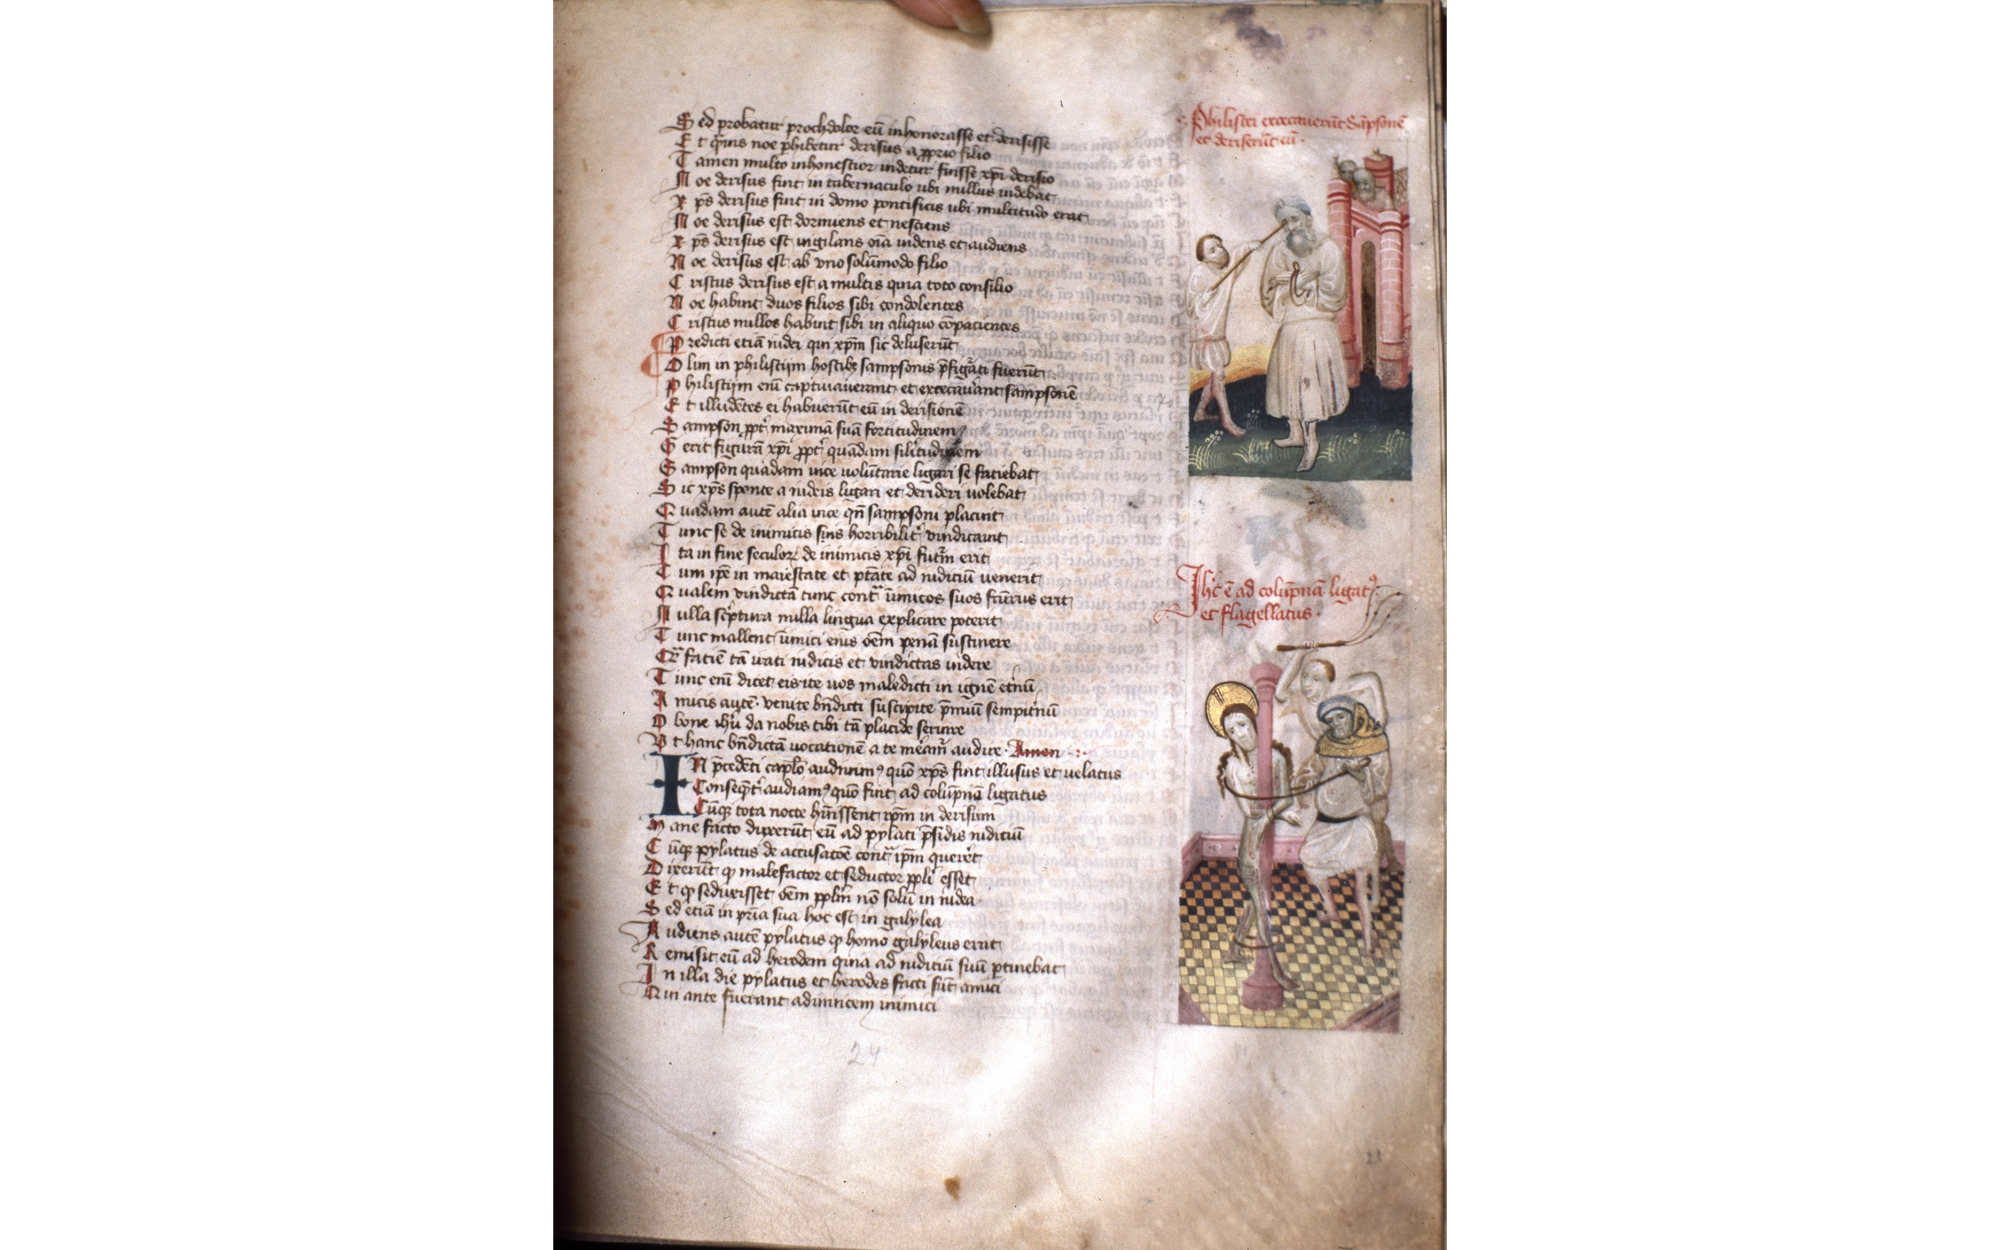 Sed probatur prochdolor eū inhonorasse et derisisse
Et q̄uis noe ꝑhibetur derisus a ꝓprio filio
Tamen multo inhonestior videtur fuisse xp̄i derisio
Noe derisus fuit in tabernaculo ubi nullus videbat
Xp̄s derisus fuit in domo pontificis ubi multitudo erat
Noe derisus est dormiens et nesciens
Xp̄s derisus est vigilans oīa videns et audiens
Noe derisus est ab vno solūmodo filio
Cristus derisus est a multis quia toto consilio
Noe habuit duos filios sibi condolentes
Cristus nullos habuit sibi in aliquo cōpacientes
Predicti etiā iudei qui xp̄m sic deluserūt
Olim in philistijm hostibꝫ sampsonis p̄figᵃti fuerūt
Philistijm enī captivaverant et excecav̄ant sampsonē
Et illudētes ei habuerūt eū in derisionē
Sampson ꝓpt̄ maximā suā fortitudinem
Gerit figurā xp̄i ꝓpt̄ quadam sil̄itudinem
Sampson quadam vice volūtarie ligari se faciebat
Sic xp̄s sponte a iudeis ligari et derideri volebat
Quadam autē alia vice qn̄ sampsoni placuit
Tunc se de inimicis suis horribilit̄ vindicauit
Ita in fine seculoꝝ de inimicis xp̄i futm̄ erit
Cum ip̄e in maiestate et ptāte ad iudiciū venerit
Qualem vindictā tunc contᵃ inimicos suos fcūrus erit
Nulla sc̄ptura nulla lingua explicare poterit
Tunc mallent inimici eius oēm penā sustinere
Qr̄ faciē tā irati iudicis et vindictas videre
Tunc enī dicet eis ite vos maledicti in ignē et̄nū
Amicis autē venite bn̄dicti suscipite p̄miū sempit̄nū
O bone ih̄u da nobis tibi tā placide servire
Vt hanc bn̄dictā vocationē a te mēam̄ audire Amen
IN p̄cedēti capl̄o audiuimꝰ quō xp̄s fuit illusus et velatus
Conseqn̄t̄ audiamꝰ quō fuit ad colūpnā ligatus
Cūqꝫ tota nocte hūissent ip̄m in derisum
Mane facto duxerūt eū ad pylati p̄sidis iudiciū
Cūqꝫ pylatus de accusacōe contᵃ ip̄m quer̄et
Dixerūt ꝙ malefactor et seductor ppl̄i esset
Et ꝙ seduxisset oēm ppl̄m nō solū in iudea
Sed etiā in pr̄ia sua hoc est in galylea
Audiens autē pylatus ꝙ homo galyleus erat
Remisit eū ad herodem quia ad iudiciū suū ꝑtinebat
In illa die pylatus et herodes facti sūt amici
Qui ante fuerant adinuicem inimici
24
Philistei excecauerūt Sāpsonē
et deriserūt eū
Ihc̄ ē ad colūpnā ligatꝰ
et flagellatus
21